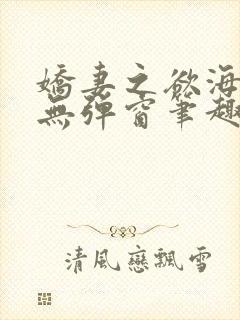 嬌妻之欲海
無彈窗筆趣
清風戀飄雪